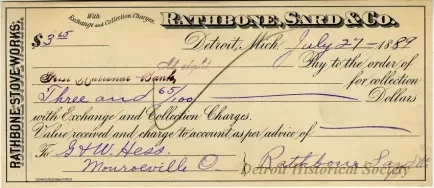 RATHBONE STOVE WORKS.
With Exchange and Collection Charges.
RATHBONE, SARD & CO.
$3 65
Detroit, Mich. July 27 = 1889
At sight
Pay to the order of
First National Bank,
for collection
Three and 65/100
Dollars
with Exchange and Collection Charges.
Value received and charge to account as per advice of
To G & W. Hess.
Monroeville O.
Rathbone Sard & Co
Detroit Historical Society